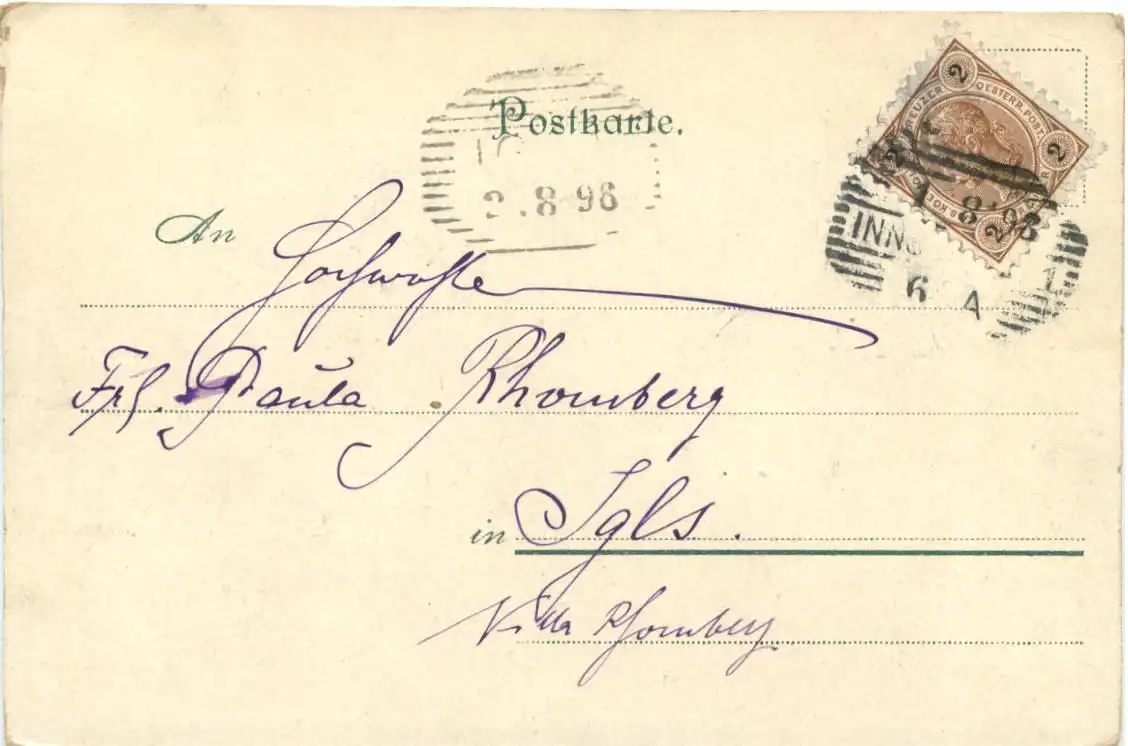 Postkarte.
2.8.98
2 KREUZER 2 OESTERR. POST. 2
1 8 98
INNS
6 A
1
An Hochwohlg
Frl. Paula Rhomberg
in Igls.
Villa Rhomberg